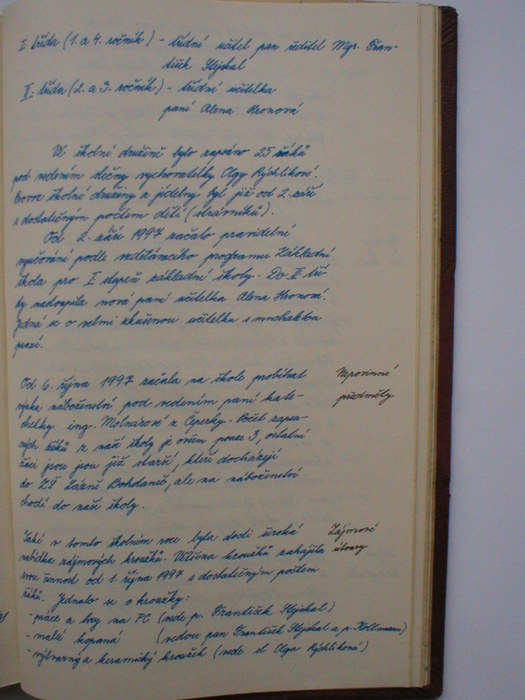 I. třída (1. a 4. ročník) - třídní učitel pan ředitel Mgr. Fran-
tišek Hýskal
II. třída (2. a 3. ročník) - třídní učitelka
paní Alena Kronová
Ve školní družině bylo zapsáno 25 žáků
pod vedením slečny vychovatelky Olgy Rýchlikové.
Provoz školní družiny a jídelny byl již od 2. září
s dostatečným počtem dětí (strávníků).
Od 2. září 1997 začalo pravidelné
vyučování podle vzdělávacího programu Základní
škola pro I. stupeň základní školy. Do II. tří-
dy nastoupila nová paní učitelka Alena Kronová.
Jedná se o velmi zkušenou učitelku s mnohaletou
praxí.
Od 6. října 1997 začala na škole probíhat
výuka náboženství pod vedením paní kate-
chetky ing. Molnárové z Čeperky. Počet zapsa-
ných žáků z naší školy je ovšem pouze 3, ostatní
žáci jsou již starší, kteří docházejí
do ZŠ Lázně Bohdaneč, ale na náboženství
chodí do naší školy.
Nepovinné
předměty
Také v tomto školním roce byla dosti široká
nabídka zájmových kroužků. Většina kroužků zahájila
svou činnost od 1. října 1997 s dostatečným počtem
žáků. Jednalo se o kroužky:
Zájmové
útvary
- práce a hry na PC (vede p. František Hýskal)
- malá kopaná (vedou pan František Hýskal a p. Kollmann)
- výtvarný a keramický kroužek (vede sl. Olga Rýchliková)